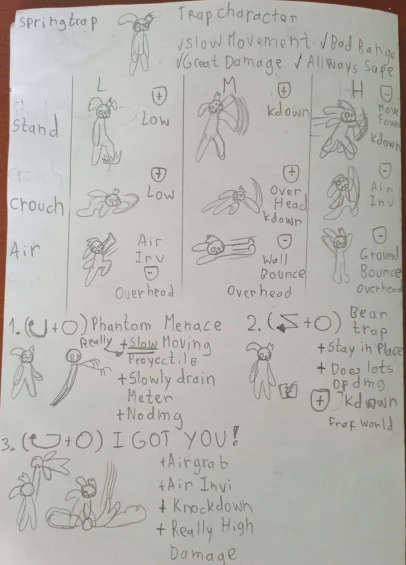 Springtrap
Trap character
√Slow Movement √Bad Range
√Great Damage √Allways Safe
L M H
Stand
+ Low
+ Kdown
- Move
Kdown
Crouch
+ Low
+ Over
Head
Kdown
- Air
Inv
Air
Air
Inv
-
Overhead
- Wall
Bounce
Overhead
- Ground
Bounce
Overhead
1. ( +O) Phantom Menace
Really +Slow Moving
Proyectile
+Slowly drain
Meter
+Nodmg
2. ( +O) Bear
trap
+Stay in Place
+Does lots
of dmg
+ Kdown
Fnaf World
3. ( +O) I GOT YOU!
+Airgrab
+Air Invi
+Knockdown
+Really High
Damage